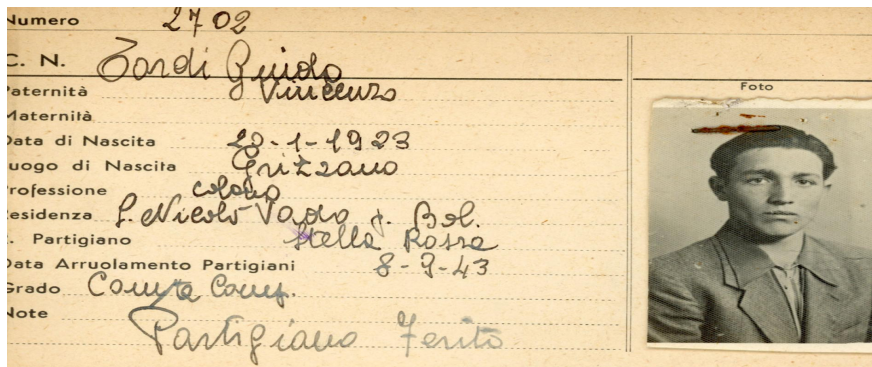 Numero 2702
C. N. Tardi Guido
Paternità Vincenzo
Maternità
Data di Nascita 20-1-1923
Luogo di Nascita Grizzano
Professione colono
Residenza S. Nicolò Vado p. Bol.
Partigiano Stella Rossa
Data Arruolamento Partigiani 8-9-43
Grado Com.te Comp.
Note
Partigiano Ferito
Foto